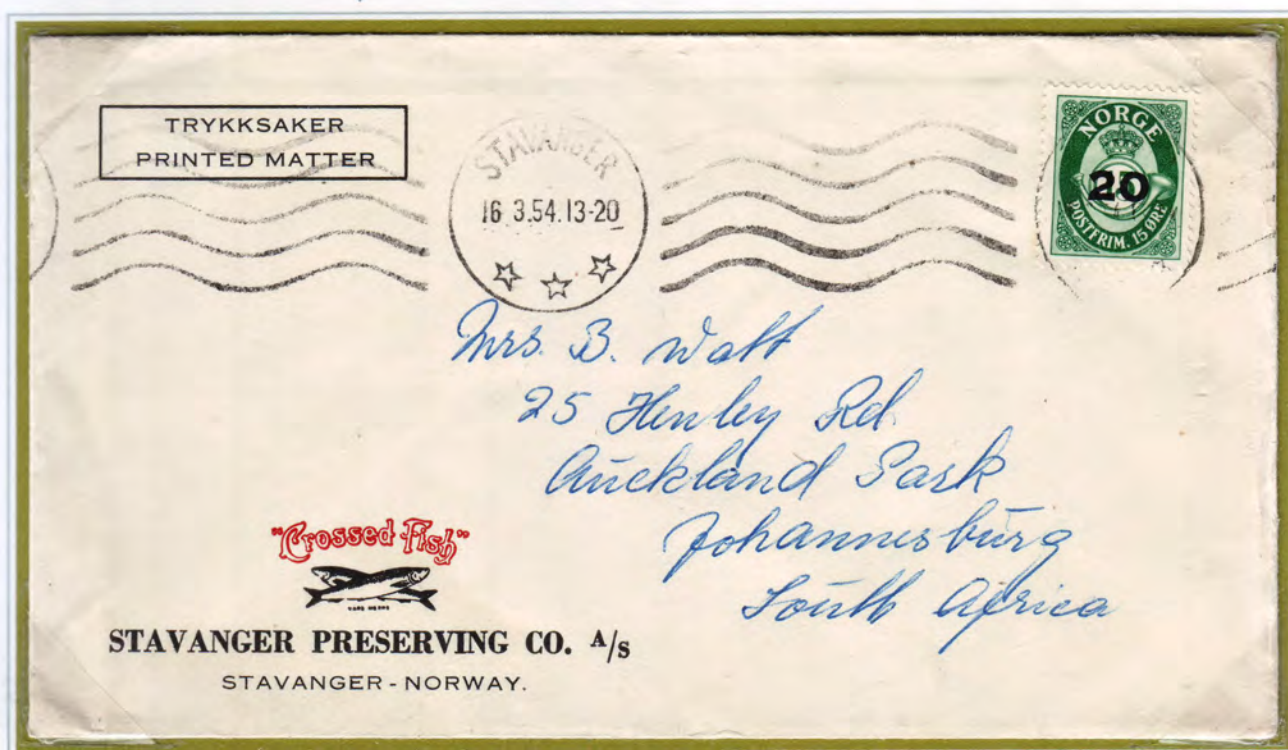 TRYKKSAKER
PRINTED MATTER
STAVANGER
16 3.54.13-20
NORGE
20
POSTFRIM. 15 ØRE
Mrs. B. Watt
25 Henley Rd
Auckland Park
Johannesburg
South Africa
"Crossed Fish"
STAVANGER PRESERVING CO. A/s
STAVANGER - NORWAY.